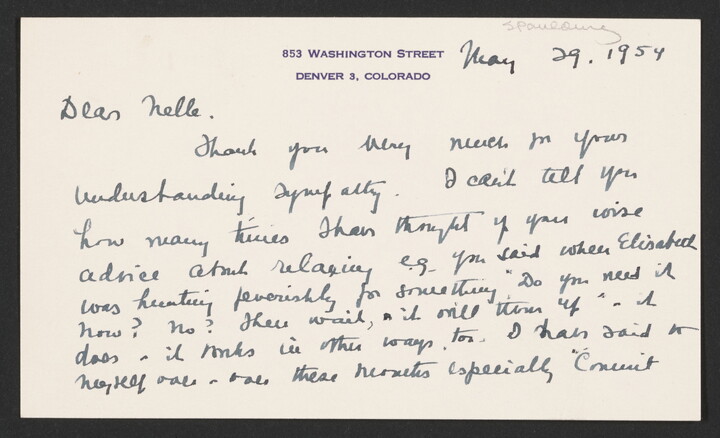 Spaulding
853 WASHINGTON STREET
DENVER 3, COLORADO
May 29. 1954
Dear Nelle.
Thank you very much for your
understanding sympathy. I can't tell you
how many times I have thought of your wise
advice about relaxing e.g. you said when Elisabeth
was hunting feverishly for something "Do you need it
now? No? Then wait, & it will turn up" - it
does - it works in other ways, too. I have said to
myself over & over these months especially "Commit